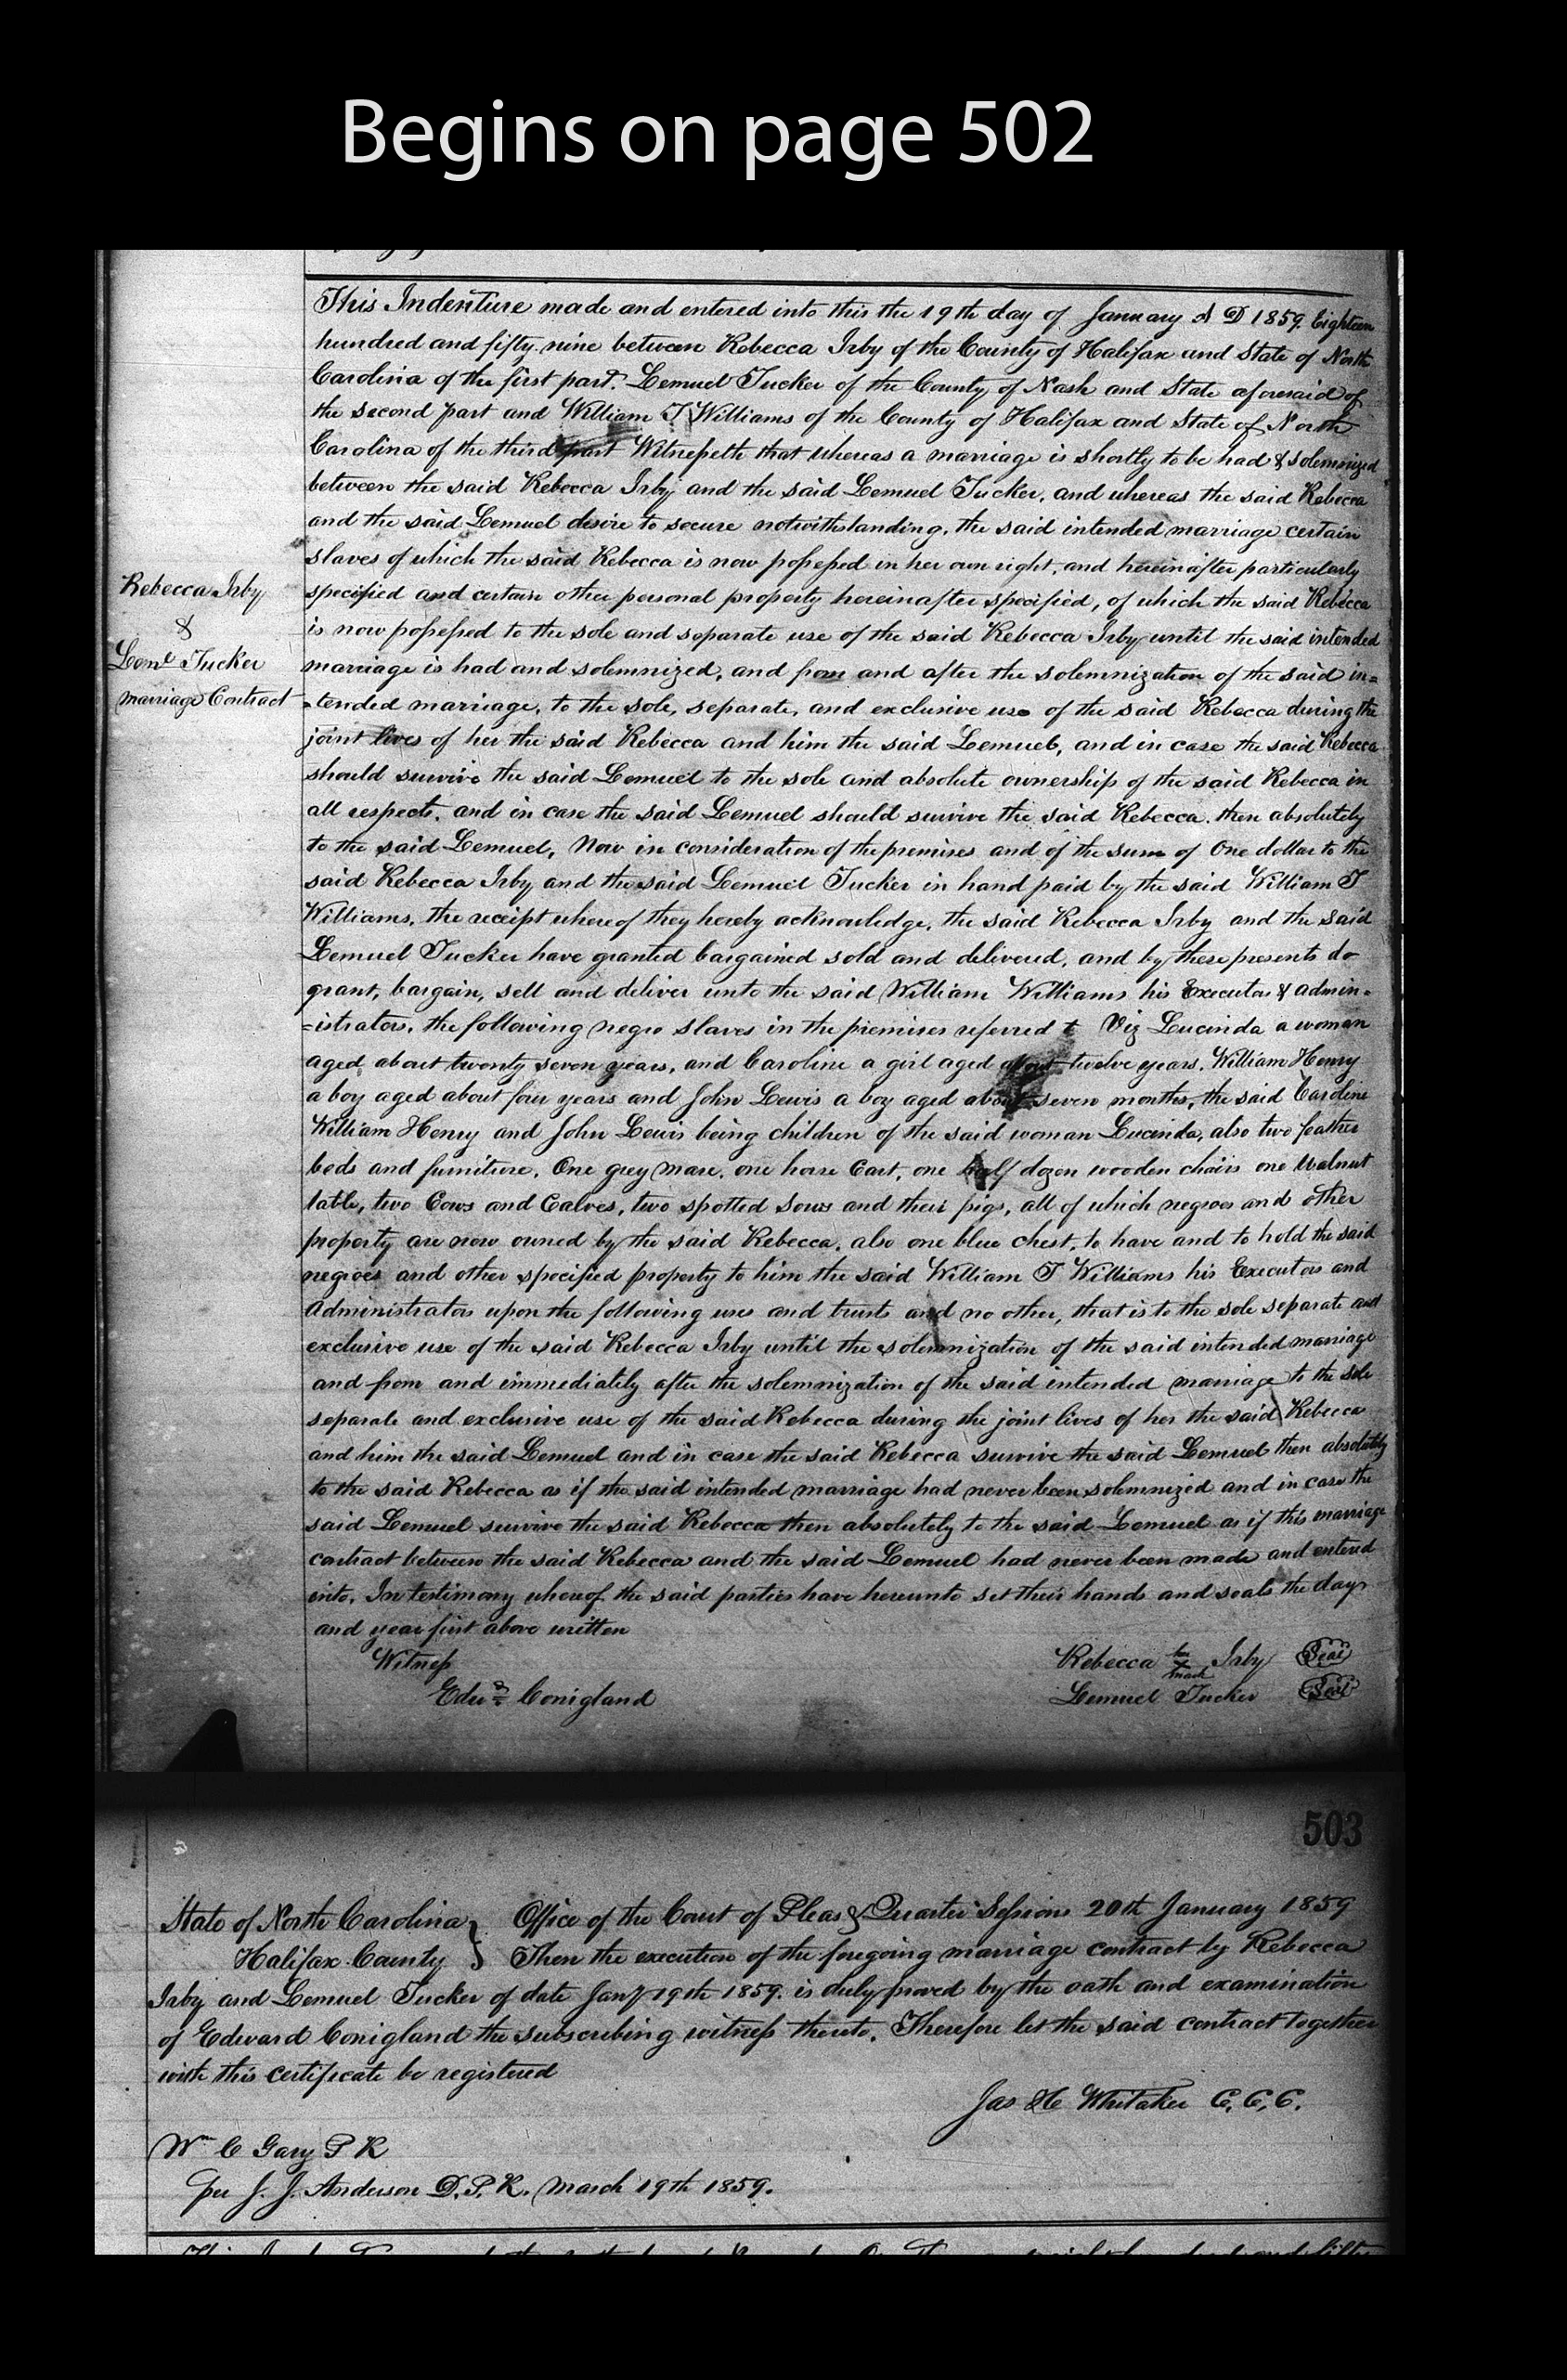 Begins on page 502
This Indenture made and entered into this the 19th day of January A D 1859. Eighteen
hundred and fifty nine between Rebecca Irby of the County of Halifax and State of North
Carolina of the first part. Lemuel Tucker of the County of Nash and State aforesaid of
the second part and William T Williams of the County of Halifax and State of North
Carolina of the third part Witnesseth that whereas a marriage is shortly to be had & solemnized
between the said Rebecca Irby and the said Lemuel Tucker, and whereas the said Rebecca
and the said Lemuel desire to secure notwithstanding, the said intended marriage certain
slaves of which the said Rebecca is now possessed in her own right, and hereinafter particularly
Rebecca Irby
&
Leml Tucker
marriage Contract
specified and certain other personal property hereinafter specified, of which the said Rebecca
is now possessed to the sole and separate use of the said Rebecca Irby until the said intended
marriage is had and solemnized, and from and after the solemnization of the said in=
=tended marriage, to the sole, separate, and exclusive use of the said Rebecca during the
joint lives of her the said Rebecca and him the said Lemuel, and in case the said Rebecca
should survive the said Lemuel to the sole and absolute ownership of the said Rebecca in
all respects, and in case the said Lemuel should survive the said Rebecca. then absolutely
to the said Lemuel, Now in consideration of the premises and of the sum of One dollar to the
said Rebecca Irby and the said Lemuel Tucker in hand paid by the said William T
Williams, the receipt whereof they hereby acknowledge, the said Rebecca Irby and the said
Lemuel Tucker have granted bargained sold and delivered, and by these presents do
grant, bargain, sell and deliver unto the said William Williams his Executors & admin=
=istrators, the following negro slaves in the premises referred to Viz Lucinda a woman
aged about twenty seven years, and Caroline a girl aged about twelve years, William Henry
a boy aged about four years and John Lewis a boy aged about seven months, the said Caroline
William Henry and John Lewis being children of the said woman Lucinda, also two feather
beds and furniture, One grey mare, one horse Cart, one half dozen wooden chairs one Walnut
table, two Cows and Calves, two spotted Sows and their pigs, all of which negroes and other
property are now owned by the said Rebecca, also one blue chest, to have and to hold the said
negroes and other specified property to him the said William T Williams his Executors and
Administrators upon the following uses and trusts and no other, that is to the sole separate and
exclusive use of the said Rebecca Irby until the solemnization of the said intended marriage
and from and immediately after the solemnization of the said intended marriage to the sole
separate and exclusive use of the said Rebecca during the joint lives of her the said Rebecca
and him the said Lemuel and in case the said Rebecca survive the said Lemuel then absolutely
to the said Rebecca as if the said intended marriage had never been solemnized and in case the
said Lemuel survive the said Rebecca then absolutely to the said Lemuel as if this marriage
contract between the said Rebecca and the said Lemuel had never been made and entered
into. In testimony whereof the said parties have hereunto set their hands and seals the day
and year first above written
Witness
Rebecca her x mark Irby Seal
Edwd Conigland
Lemuel Tucker Seal
503
State of North Carolina } Office of the Court of Pleas & Quarter Sessions 20th January 1859
Halifax County } Then the execution of the foregoing marriage contract by Rebecca
Irby and Lemuel Tucker of date Jany 19th 1859. is duly proved by the oath and examination
of Edward Conigland the subscribing witness thereto. Therefore let the said contract together
with this certificate be registered
Jas H Whitaker C, C, C.
Wm C Gary P R
per J. J. Anderson D. P. R. March 19th 1859.